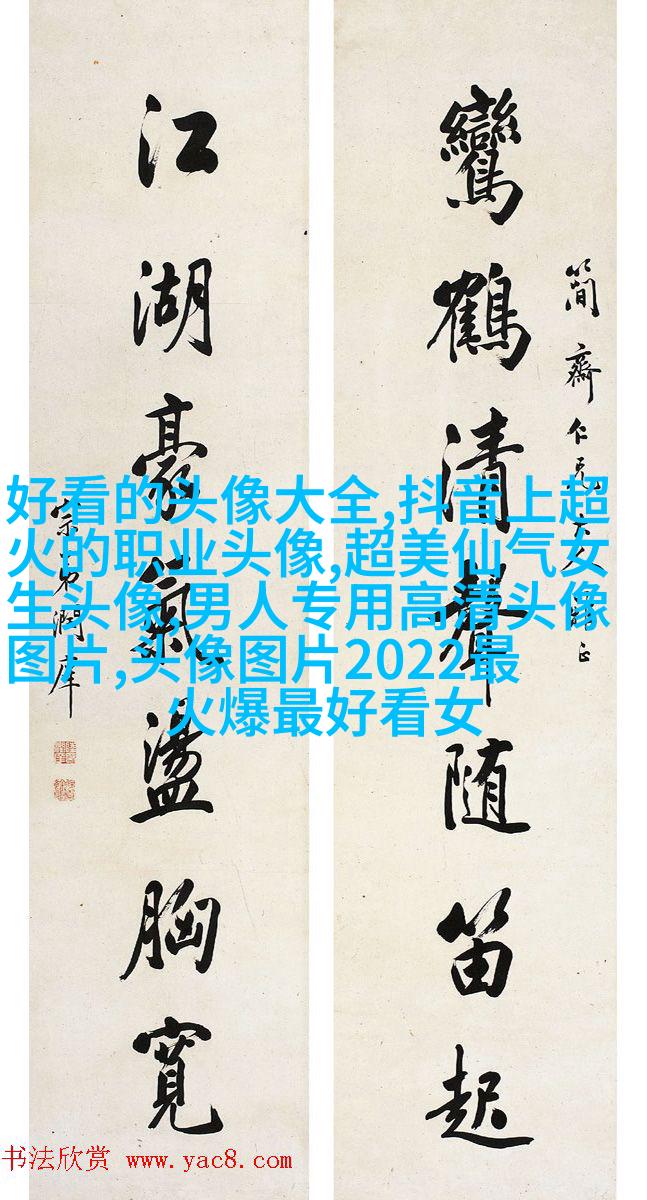 鸞鶴清聲随笛起
簡齋仁兄大人
正
江湖豪氣盪胸寬
宗弟潤庠
好看的头像大全,抖音上超
火的职业头像,超美仙气女
生头像,男人专用高清头像
图片,头像图片2022最
火爆最好看女
书法欣赏 www.yac8.com